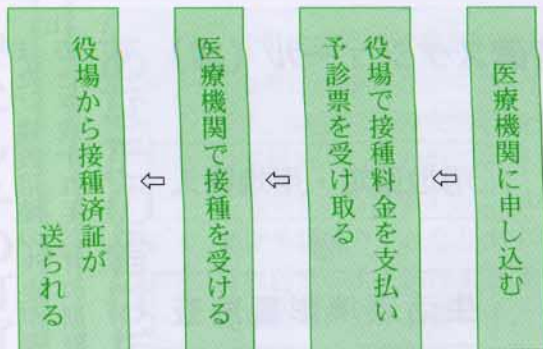 医療機関に申し込む
⇦
役場で接種料金を支払い
予診票を受け取る
⇦
医療機関で接種を受ける
⇦
役場から接種済証が
送られる